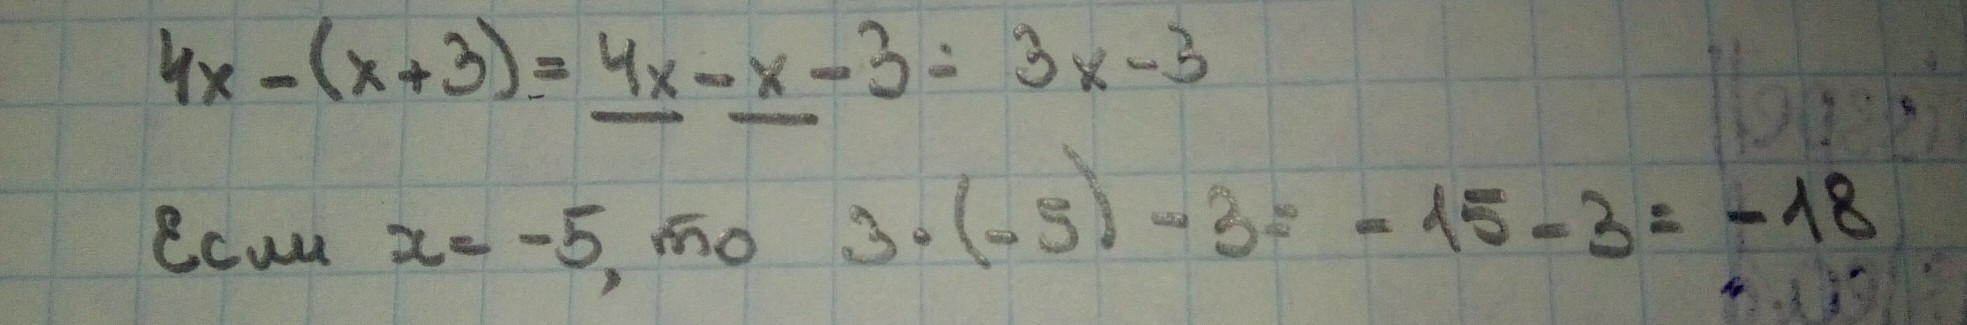 4x - (x + 3) = 4x - x - 3 = 3x - 3
Если x = -5, то 3 · (-5) - 3 = -15 - 3 = -18